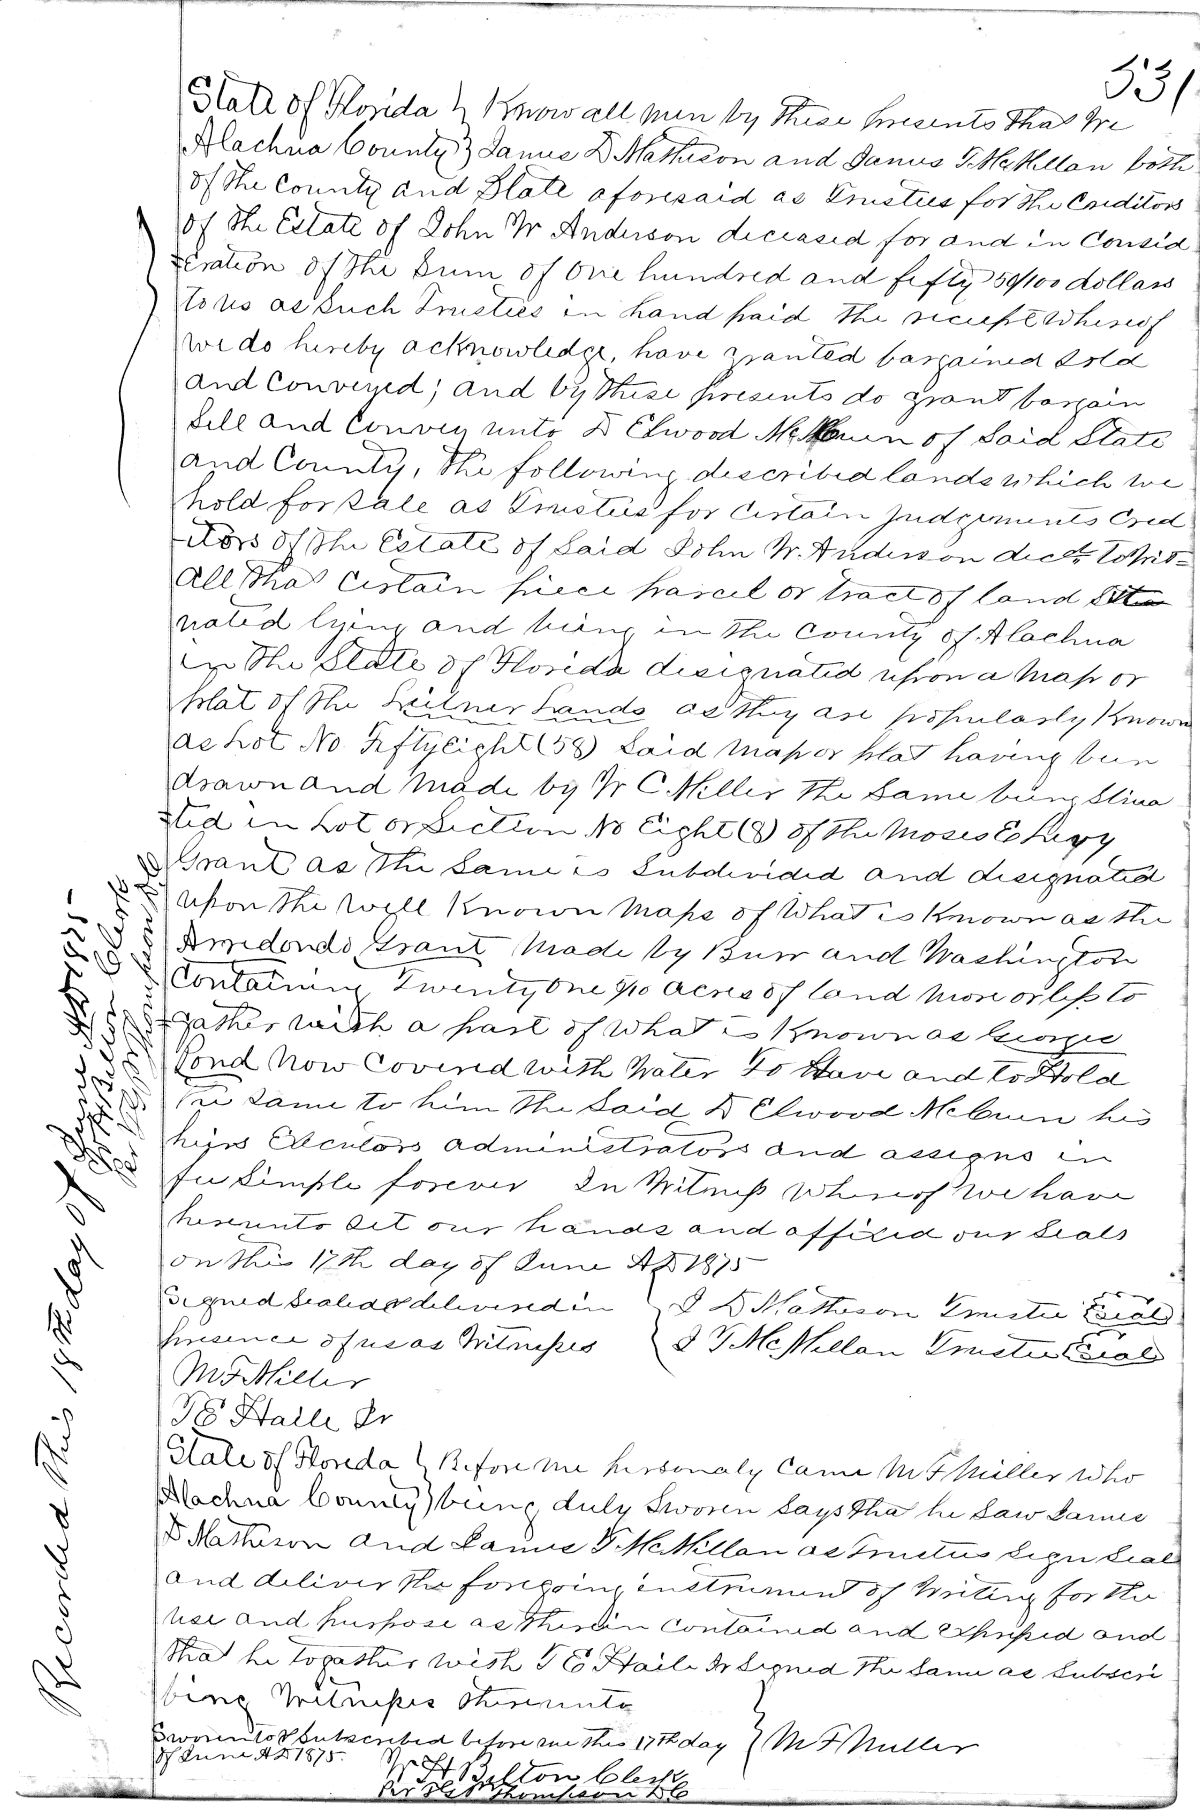 531
State of Florida } Know all men by these presents that We
Alachua County } James D Matheson and James T. McMillan both
of the County and State aforesaid as Trusties for the Creditors
of the Estate of John W Anderson deceased for and in Consid
eration of the Sum of One hundred and fifty 50/100 dollars
to us as Such Trusties in hand paid the reciept whereof
we do hereby acknowledge, have granted bargained sold
and Conveyed; and by these presents do grant bargain
Sell and Convey unto D Elwood McCuen of Said State
and County, the following described lands which we
hold for sale as Trustees for Certain Judgements Cred
itors of the Estate of Said John W. Anderson decd. to Wit=
All that Certain piece parcel or tract of land Situ
uated lying and being in the County of Alachua
in the State of Florida designated upon a map or
plat of the Leitner Lands as they are popularly Known
as Lot No Fifty Eight (58) Said map or plat having been
drawn and made by W C. Miller the Same being Situa
ted in Lot or Section No Eight (8) of the Moses E Levy
Grant as the Same is Subdivided and designated
upon the Well Known Maps of What is Known as the
Arredondo Grant Made by Burr and Washington
Containing Twenty One 9/10 acres of land more or less to
gather with a part of what is Known as Georges
Pond Now Covered with Water To Have and to Hold
The Same to him the Said D Elwood McCuen his
heirs Executors administrators and assigns in
fee Simple forever In Witness Whereof We have
hereunto Set our hands and affixed our Seals
on this 17th day of June AD 1875
Signed Sealed & delivered in } J D Matheson Trustee Seal
presence of us as Witnesses } J T McMillan Trustee Seal
M F Miller
T E Haile Jr
State of Floreda } Before me personaly Came M F Miller who
Alachua County } being duly Sworen Says tha he Saw James
D Matheson and James T. McMillan as Trustees Sign Seal
and deliver the foregoing instrument of Writing for the
use and purpose as therein Contained and Expressed and
that he togather with T E Haile Jr Signed the Same as Subscri
bing Witnesses thereunto
Sworen to & Subscribed before me this 17th day } M F Miller
of June AD 1875.
W H Belton Clerk
Per Thompson DC
Recorded this 18th day of June AD 1875
W H Belton Clerk
Per Thompson DC